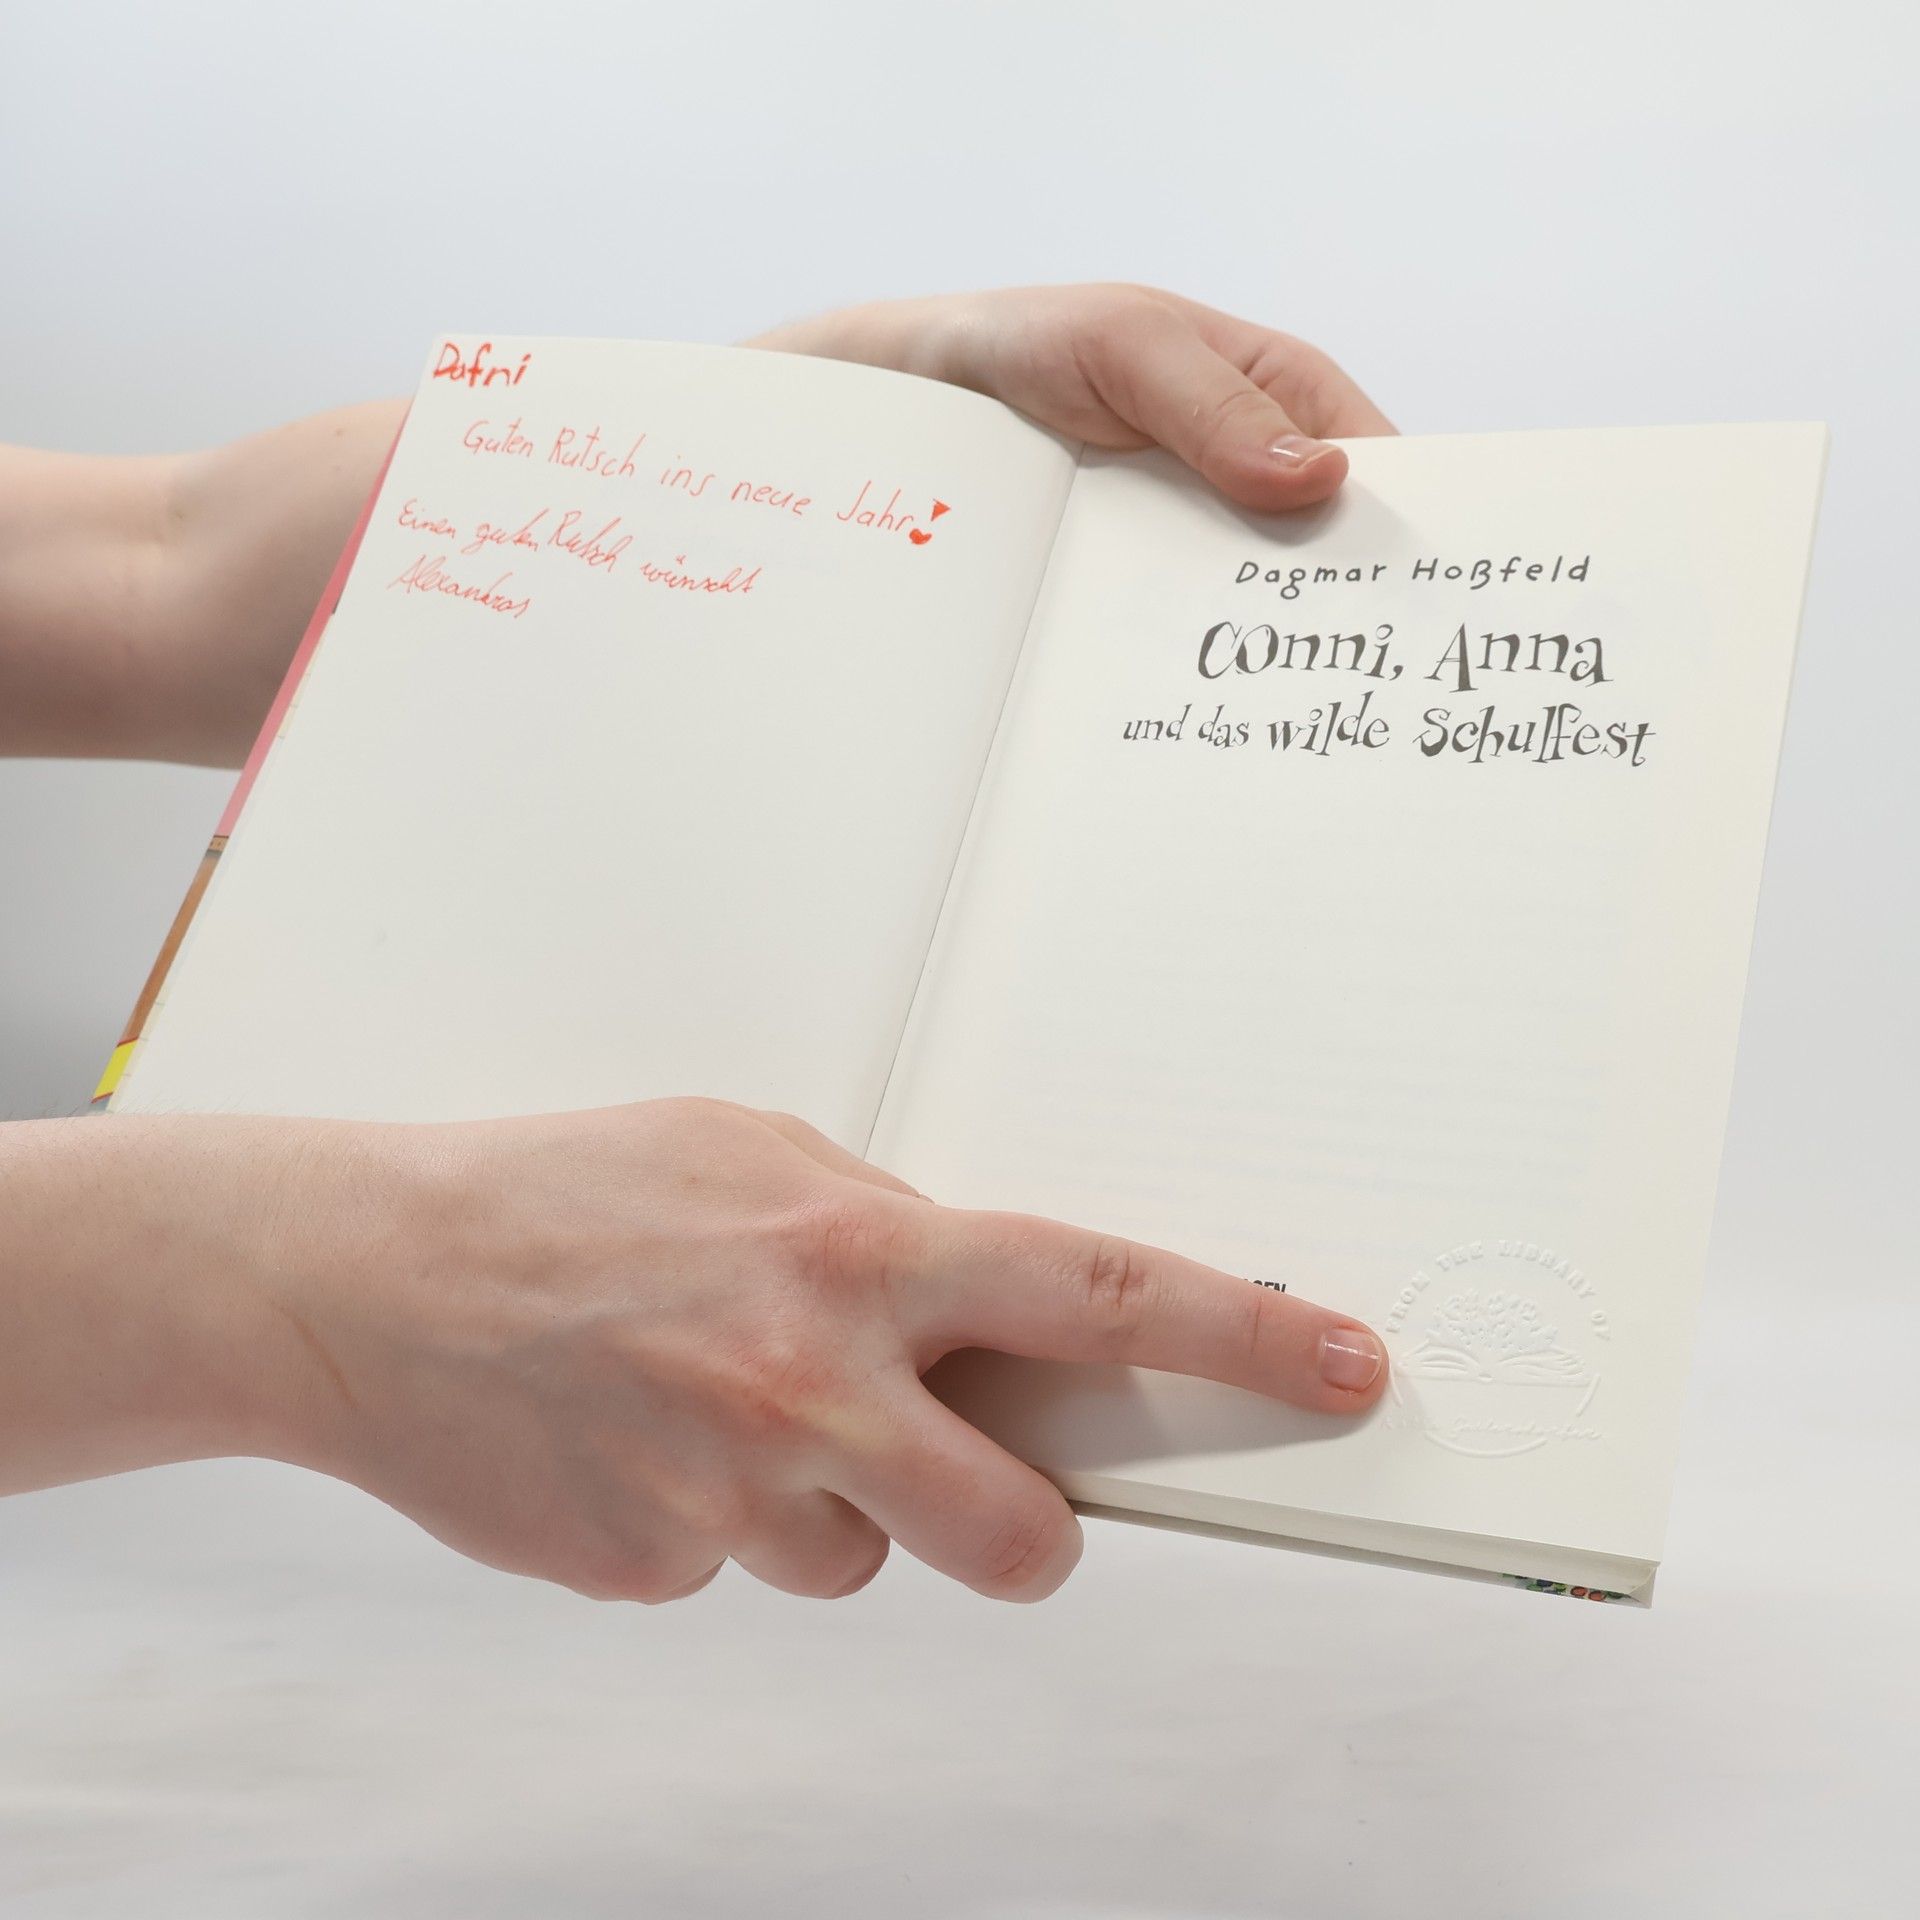 Dafni
Guten Rutsch ins neue Jahr!
Einen guten Rutsch wünscht
Alexandros
Dagmar Hoßfeld
Conni, Anna
und das wilde Schulfest
FROM THE LIBRARY OF